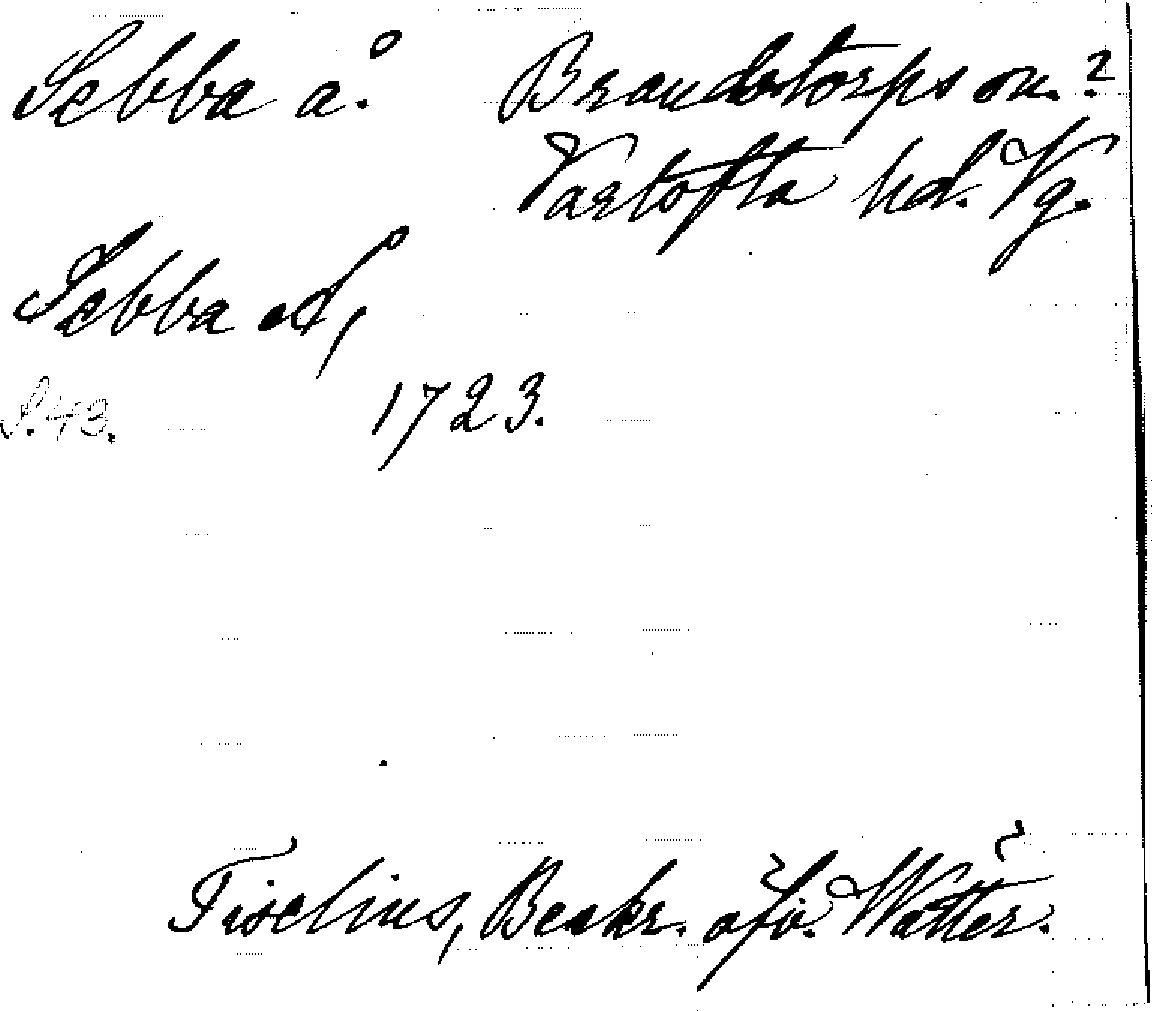 Sebba å. Brandstorps sn.?
Vartofta hd. Vg.
Sebba Å,
S. 43. 1723.
Tiselius, Beskr. öfv. Wätter.